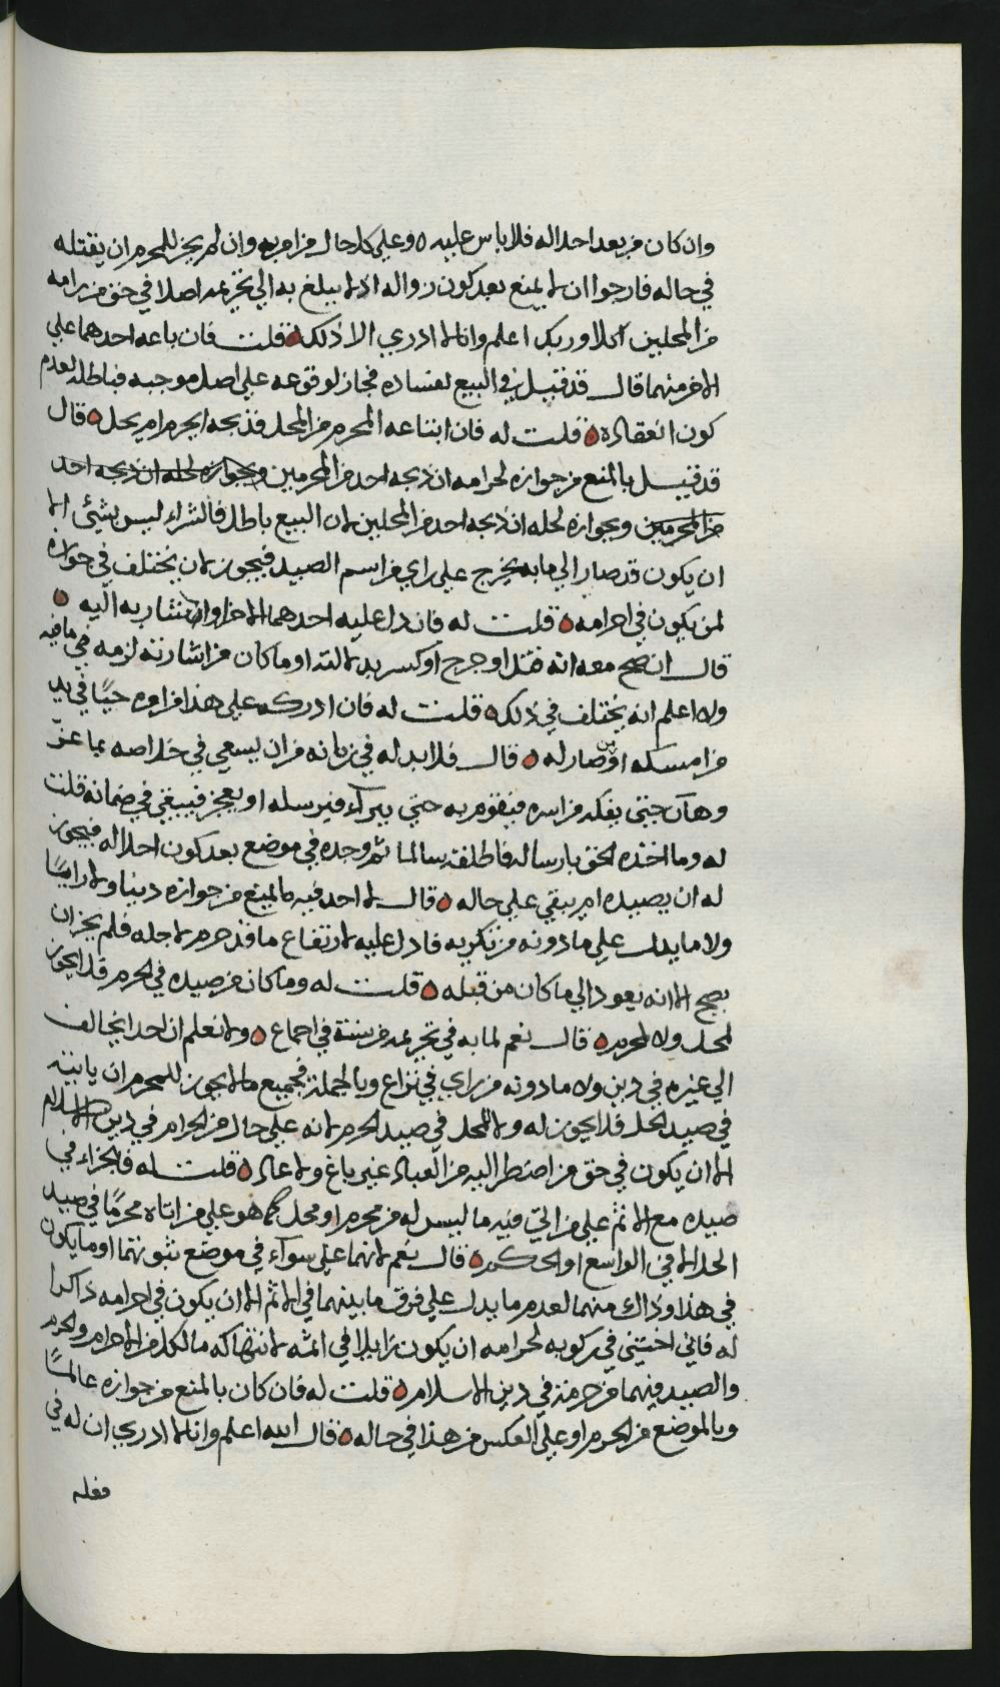 وان كان من بعد احلاله فلا باس عليه ه وعلى كل حال من امره وان لم يجز للمحرم ان يقتله
في حاله فارجوا ان لا يمنع بعد كون زواله اذ لا يبلغ به الي تحريمه اصلا في حق من رامه
من المحلين الا وربك اعلم وانا لا ادري الا ذلك ه قلت فان باعه احدهما على
الاخر منهما قال قد قيل في البيع لفساده فجاز لوقوعه علي اصل موجبه فباطله لعدم
كون انعقاده ه قلت له فان ابتاعه المحرم من المحل فذبحه ايحرم ام يحل ه قال
قد قيل بالمنع من جوازه لحرامه ان ذبحه احد من المحرمين وبجوازه لحله ان ذبحه احد
من المحرمين وبجوازه لحله ان ذبحه احد من المحلين لان البيع باطل فالشراء ليس بشئ الا
ان يكون قد صار الي ما به يخرج على راي من اسم الصيد فيجوز لان يختلف في جوازه
لمن يكون في احرامه ه قلت له فان دل عليه احدهما الاخر او استشار به اليه ه
قال ان صح معه انه قتل او جرح او كسر بدلالته او ما كان من اشارته لزمه في ما فيه
ولا اعلم انه يختلف في ذلك ه قلت له فان ادركه على هذا من امره حيا في يد
من امسكه او من صار له ه قال فلا بد له في زمانه من ان يسعي في خلاصه بما عز
وهان حتى يفكه من اسره فيقوم به حتي يبرآء فيرسله او يعجز فيبقي في ضمانه قلت
له وما اخذه لحق بارساله فاطلقه سالما ثم وجده في موضع بعد كون احلاله فيجوز
له ان يصيده ام يبقي على حاله ه قال لا احد فيه ما يمنع من جوازه دينا ولا رايا
ولا ما يدل على ما دونه من تكريه فادل عليه لارتفاع ما قد حرم لاجله فلم يجز ان
يصح الا انه يعود الي ما كان من قبله ه قلت له وما كان من صيده في الحرم فلا يجوز
لمحل ولا لمحرم ه قال نعم لما به في تحريمه من سنة في اجماع ه ولا نعلم ان احدا يخالف
الي غيره في دين ولا ما دونه من راي في نزاع وبالجملة فجميع ما لا يجوز للمحرم ان ياتيه
في صيد الحل فلا يجوز له ولا للمحل في صيد الحرم لانه على حال من الحرام في دين الاسلام
الا ان يكون في حق من اضطر اليه من العباد غير باغ ولا عاد ه قلت له فالجزاء في
صيده مع الاثم على من اتي فيه ما ليس له من محرم او محل كما هو على من اتاه محرما في صيد
الحل الا في الواسع او الحكم ه قال نعم لانهما على سوآء في موضع ثبوتهما او ما يكون
في هذا وذاك منهما لعدم ما يدل على فرق ما بينهما في الاثم الا ان يكون في احرامه ذاكرا
له فاني اخشي في ركوبه لحرامه ان يكون زايدا في اثمه لانتهاكه ما لكل من الاحرام والحرم
والصيد فيهما من حرمة في دين الاسلام ه قلت له فان كان بالمنع من جوازه عالما
وبالموضع من الحرم او على العكس من هذا في حاله ه قال الله اعلم وانا لا ادري ان له في
فعله